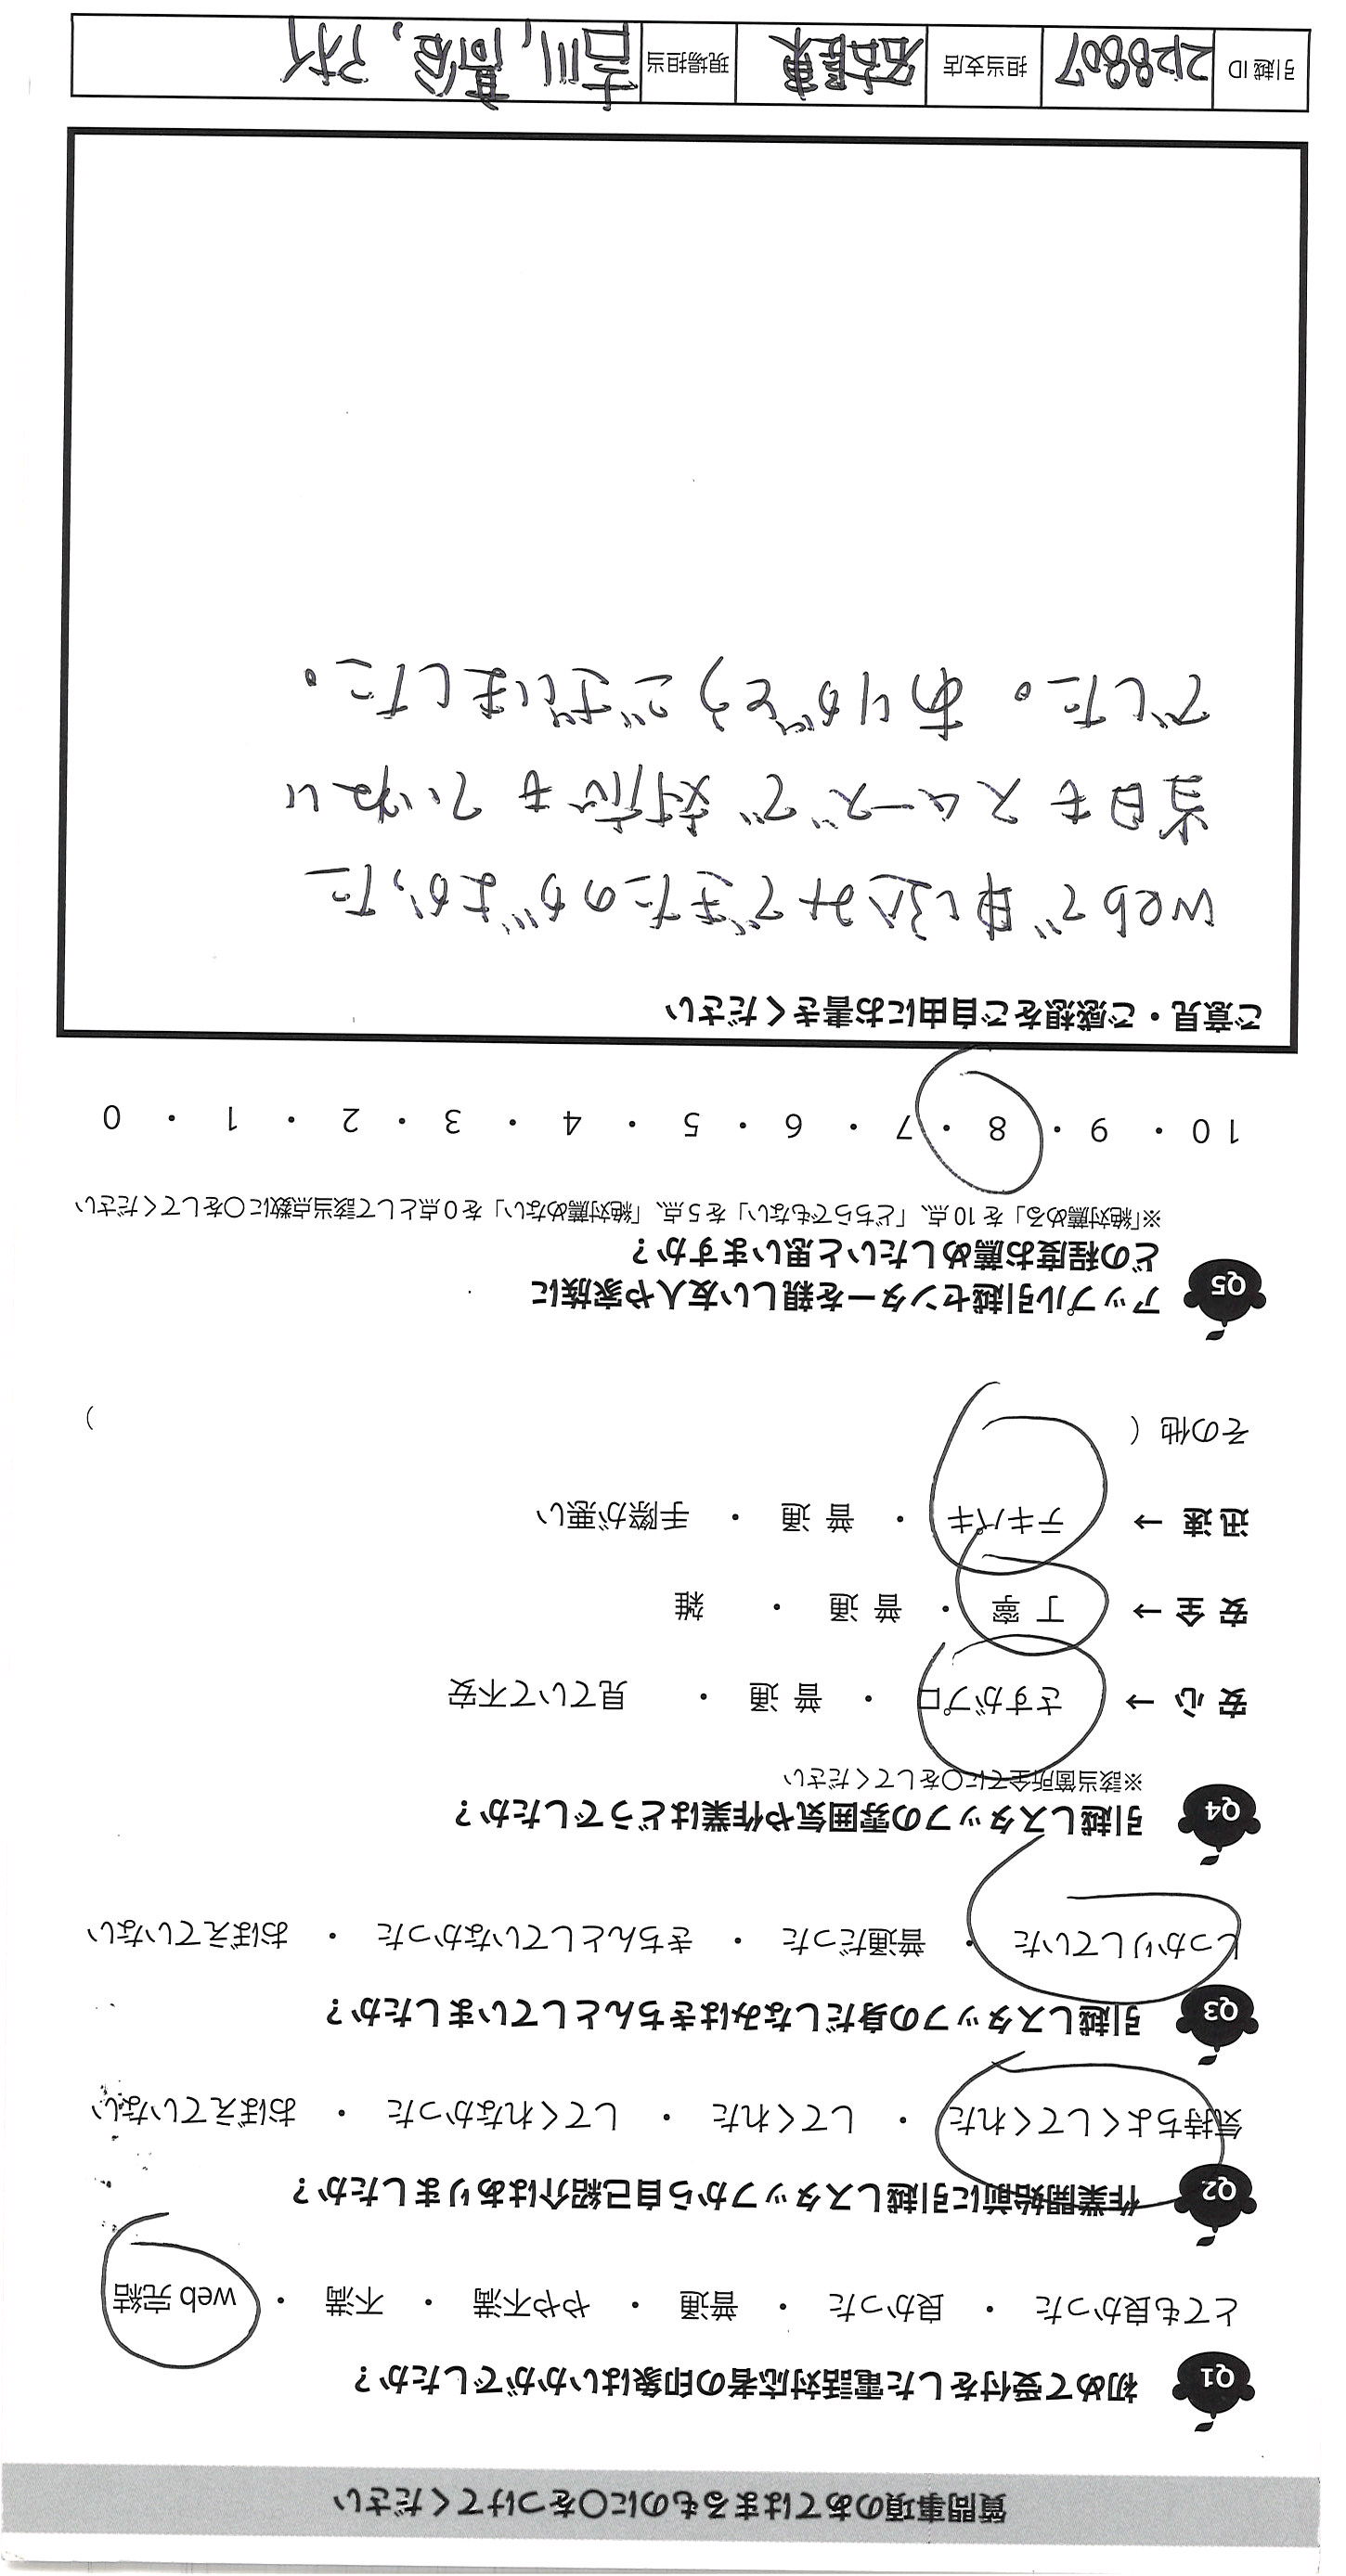 質問事項のあてはまるものに〇をつけてください
Q1 初めて受付をした電話対応者の印象はいかがでしたか？
とても良かった ・ 良かった ・ 普通 ・ やや不満 ・ 不満 ・ web 完結
Q2 作業開始前に引越しスタッフから自己紹介はありましたか？
気持ちよくしてくれた ・ してくれた ・ してくれなかった ・ おぼえていない
Q3 引越しスタッフの身だしなみはきちんとしていましたか？
しっかりしていた ・ 普通だった ・ きちんとしていなかった ・ おぼえていない
Q4 引越しスタッフの雰囲気や作業はどうでしたか？
※該当箇所全てに〇をしてください
安 心 → さすがプロ ・ 普 通 ・ 見ていて不安
安 全 → 丁 寧 ・ 普 通 ・ 雑
迅 速 → テキパキ ・ 普 通 ・ 手際が悪い
その他（ ）
Q5 アップル引越センターを親しい友人や家族に
どの程度お薦めしたいと思いますか？
※「絶対薦める」を 10 点、「どちらでもない」を 5 点、「絶対薦めない」を 0 点として該当点数に〇をしてください
10 ・ 9 ・ 8 ・ 7 ・ 6 ・ 5 ・ 4 ・ 3 ・ 2 ・ 1 ・ 0
ご意見・ご感想をご自由にお書きください
webで申し込みできたのがよかった
当日もスムーズで対応もていねい
でした。ありがとうございました。
引越 ID 担当支店 名古屋東 現場担当 吉川,